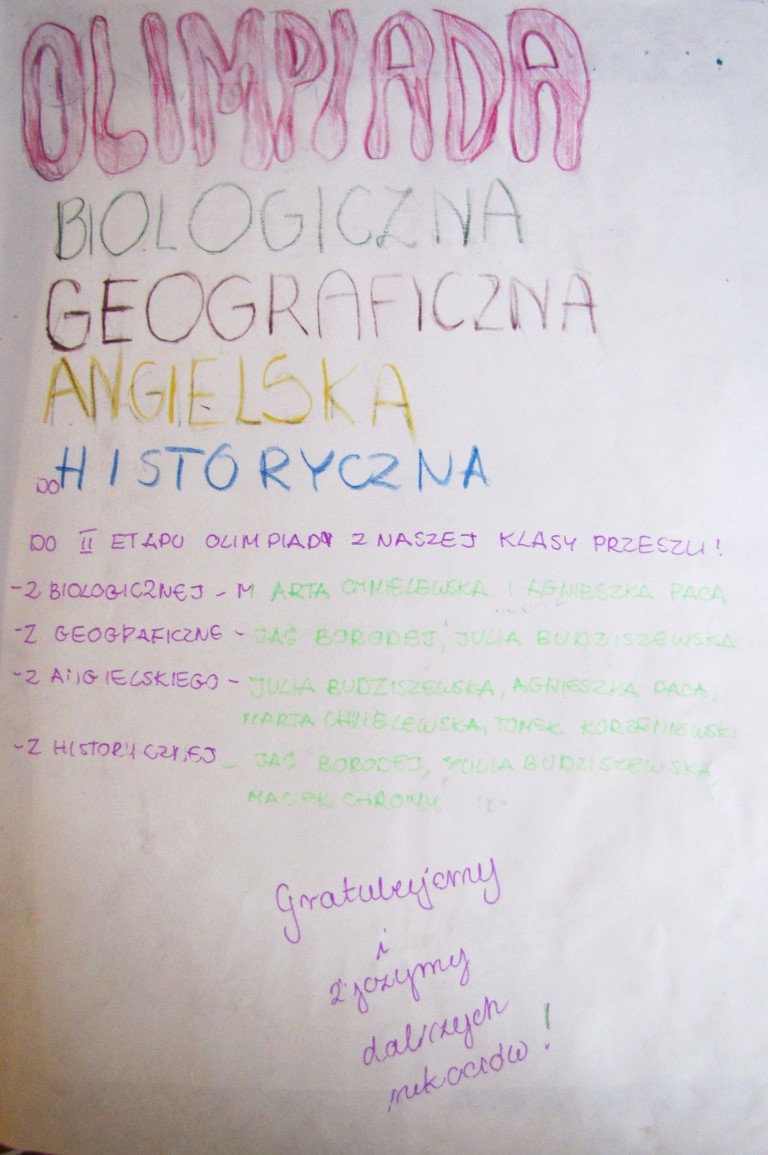 OLIMPIADA
BIOLOGICZNA
GEOGRAFICZNA
ANGIELSKA
HISTORYCZNA
DO
DO II ETAPU OLIMPIADY Z NASZEJ KLASY PRZESZLI!
-Z BIOLOGICZNEJ - MARTA CHMIELEWSKA I AGNIESZKA PACA
-Z GEOGRAFICZNE - JAŚ BORODEJ, JULIA BUDZISZEWSKA
-Z ANGIELSKIEGO - JULIA BUDZISZEWSKA, AGNIESZKA PACA,
MARTA CHMIELEWSKA, TOMEK KORZENIEWSKI
-Z HISTORYCZNEJ - JAŚ BORODEJ, JULIA BUDZISZEWSKA,
MACIEK CHROMY
Gratulujemy
i
dalszych
!